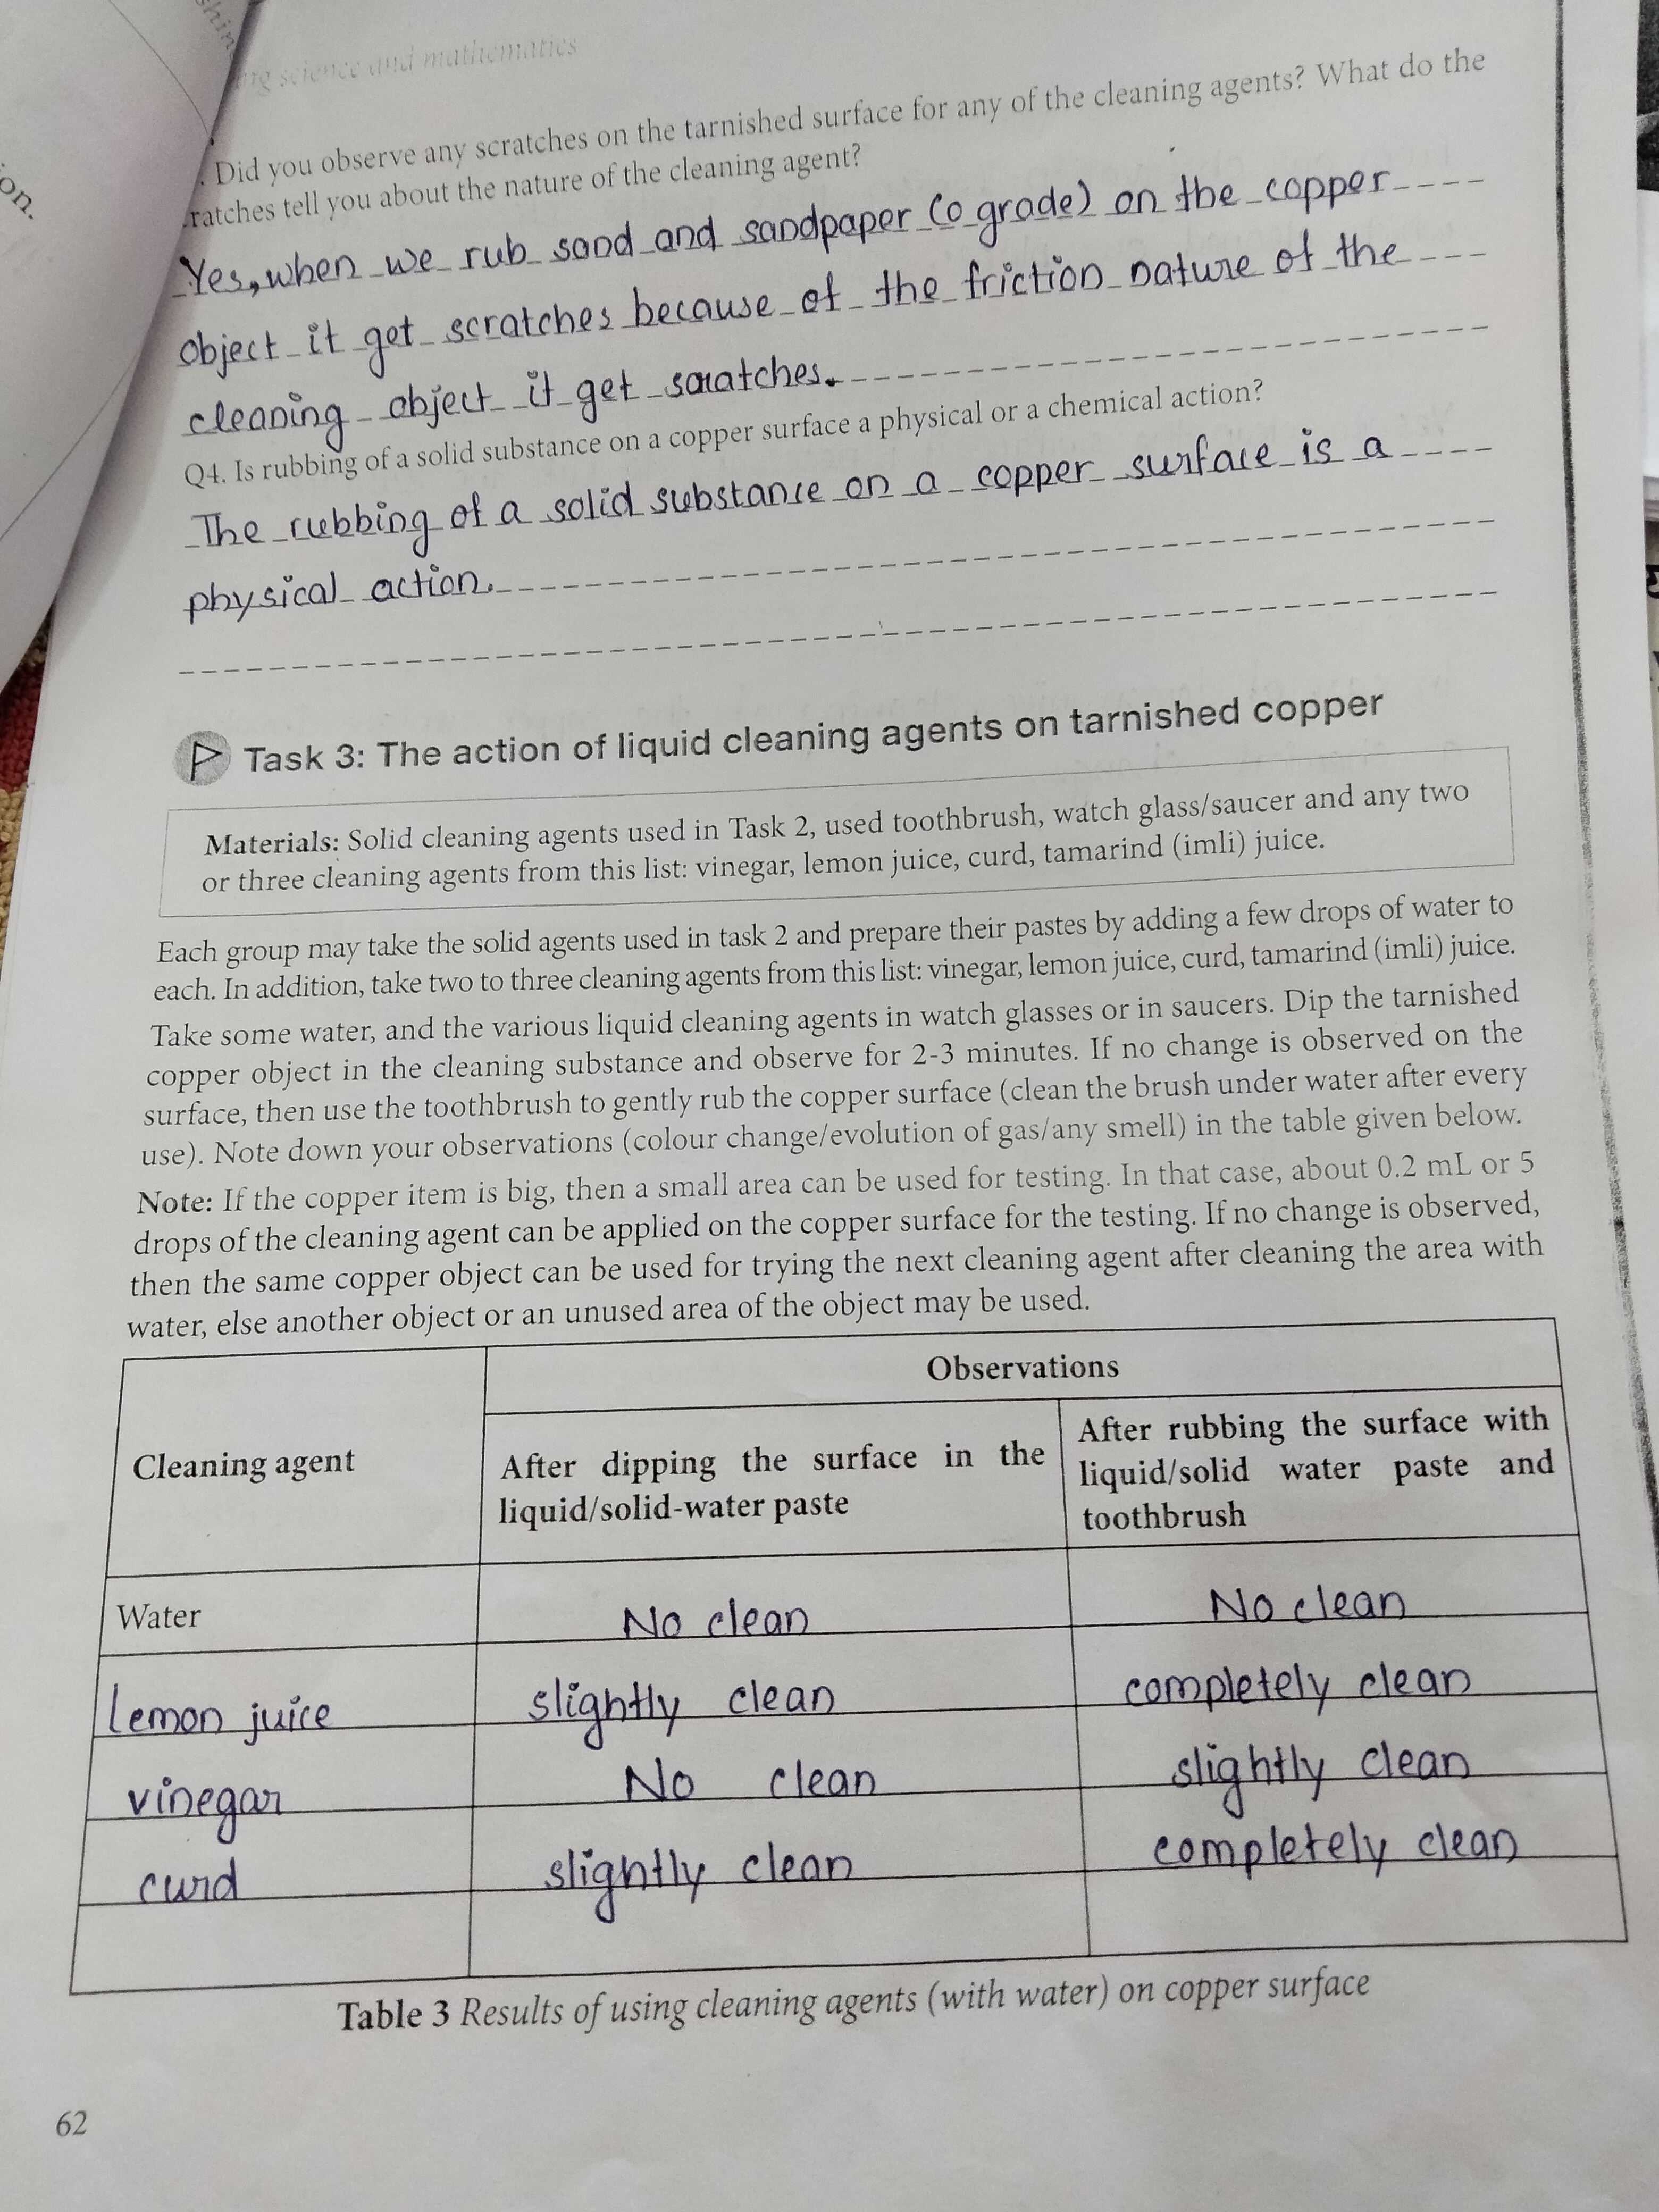 shin
on.
ng science and mathematics
. Did you observe any scratches on the tarnished surface for any of the cleaning agents? What do the
ratches tell you about the nature of the cleaning agent?
Yes, when we rub sand and sandpaper (0 grade) on the copper
object it get scratches because of the friction nature of the
cleaning object it get scratches.
Q4. Is rubbing of a solid substance on a copper surface a physical or a chemical action?
The rubbing of a solid substance on a copper surface is a
physical action.
Task 3: The action of liquid cleaning agents on tarnished copper
Materials: Solid cleaning agents used in Task 2, used toothbrush, watch glass/saucer and any two
or three cleaning agents from this list: vinegar, lemon juice, curd, tamarind (imli) juice.
Each group may take the solid agents used in task 2 and prepare their pastes by adding a few drops of water to
each. In addition, take two to three cleaning agents from this list: vinegar, lemon juice, curd, tamarind (imli) juice.
Take some water, and the various liquid cleaning agents in watch glasses or in saucers. Dip the tarnished
copper object in the cleaning substance and observe for 2-3 minutes. If no change is observed on the
surface, then use the toothbrush to gently rub the copper surface (clean the brush under water after every
use). Note down your observations (colour change/evolution of gas/any smell) in the table given below.
Note: If the copper item is big, then a small area can be used for testing. In that case, about 0.2 mL or 5
drops of the cleaning agent can be applied on the copper surface for the testing. If no change is observed,
then the same copper object can be used for trying the next cleaning agent after cleaning the area with
water, else another object or an unused area of the object may be used.
Observations
Cleaning agent
After dipping the surface in the
liquid/solid-water paste
After rubbing the surface with
liquid/solid water paste and
toothbrush
Water No clean No clean
Lemon juice slightly clean completely clean
vinegar No clean slightly clean
curd slightly clean completely clean
Table 3 Results of using cleaning agents (with water) on copper surface
62